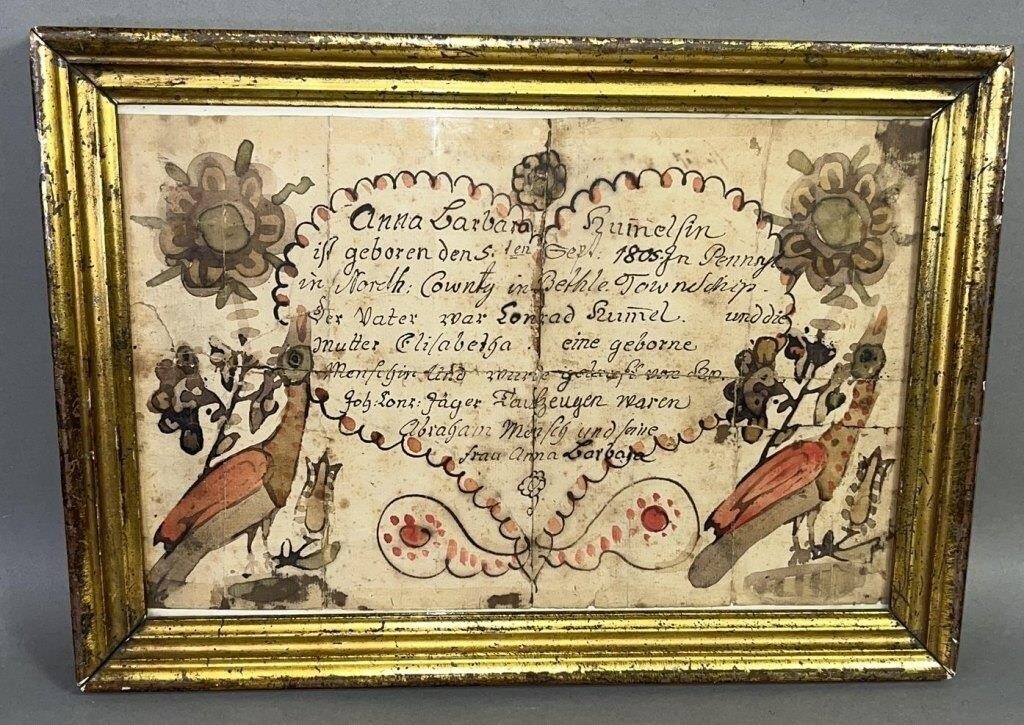 Anna Barbara Kum̄elsin
ist geboren den 5.ten Sept: 1805 Jn Pennsyl
in North: Cownty in Bethle. Townschip.
Der Vater war Conrad Kum̄el. und die
Mutter Elisabetha. eine geborne
Menschin Und wurde getauft von Hn.
Joh: Conr: Jäger Taufzeugen waren
Abraham Mensch und seine
frau Anna Barbara